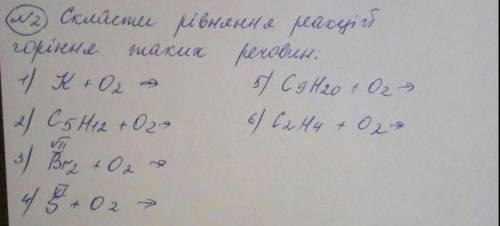 №2 Скласти рівняння реакцій
горіння таких речовин:
1) K + O2 →
2) C5H12 + O2 →
VII
3) Br2 + O2 →
VI
4) S + O2 →
5) C9H20 + O2 →
6) C2H4 + O2 →